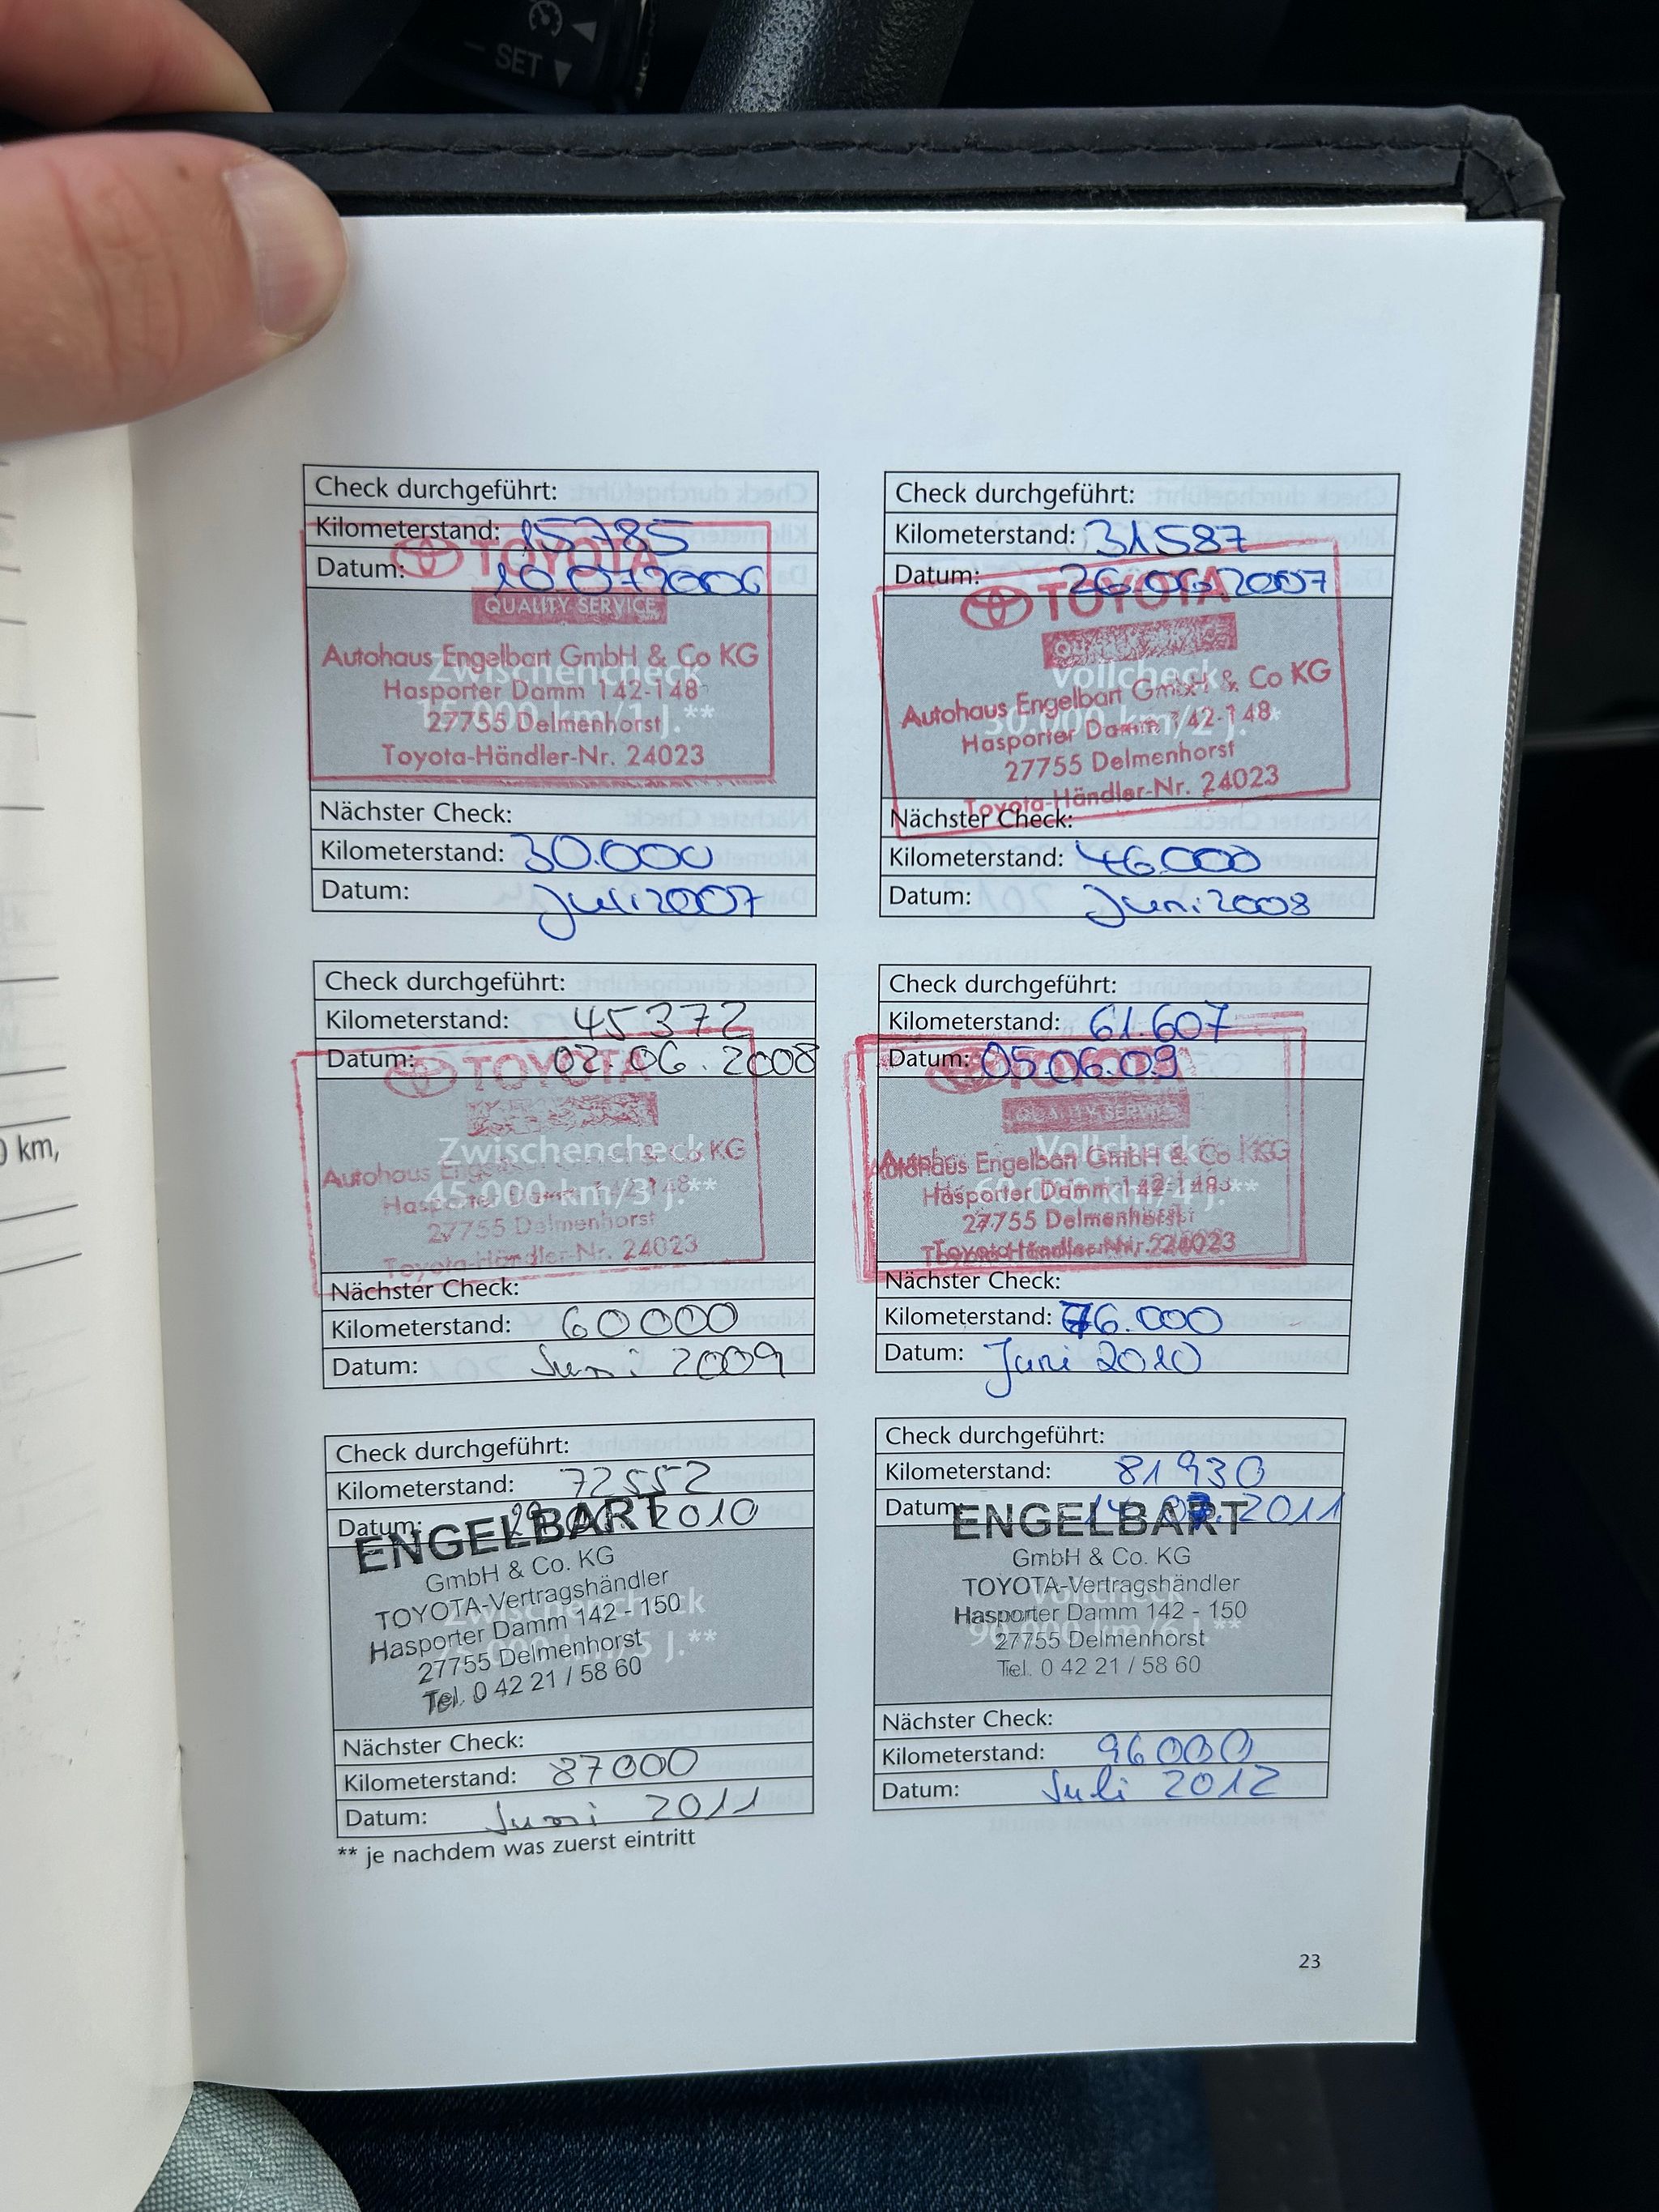 SET
0 km,
Check durchgeführt:
Kilometerstand: 15785
Datum: 10.07.2006
TOYOTA
QUALITY SERVICE
Autohaus Engelbart GmbH & Co KG
Zwischencheck
Hasporter Damm 142-148
15.000 km/1 J.**
27755 Delmenhorst
Toyota-Händler-Nr. 24023
Nächster Check:
Kilometerstand: 30.000
Datum: Juli 2007
Check durchgeführt:
Kilometerstand: 31587
Datum: 26.06.2007
TOYOTA
QUALITY SERVICE
Vollcheck
Autohaus Engelbart GmbH & Co KG
30.000 km/2 J.**
Hasporter Damm 142-148
27755 Delmenhorst
Toyota-Händler-Nr. 24023
Nächster Check:
Kilometerstand: 46.000
Datum: Juni 2008
Check durchgeführt:
Kilometerstand: 45372
Datum: 02.06.2008
TOYOTA
Zwischencheck
Autohaus & Co KG
45.000 km/3 J.**
27755 Delmenhorst
Toyota-Händler-Nr. 24023
Nächster Check:
Kilometerstand: 60000
Datum: Juni 2009
Check durchgeführt:
Kilometerstand: 61.607
Datum: 05.06.09
TOYOTA
QUALITY SERVICE
Vollcheck
Autohaus Engelbart GmbH & Co KG
60.000 km/4 J.**
Hasporter Damm 142-148
27755 Delmenhorst
Toyota-Händler-Nr. 24023
Nächster Check:
Kilometerstand: 76.000
Datum: Juni 2010
Check durchgeführt:
Kilometerstand: 72552
Datum: 2010
ENGELBART
GmbH & Co. KG
TOYOTA-Vertragshändler
Zwischencheck
Hasporter Damm 142 - 150
75.000 km/5 J.**
27755 Delmenhorst
Tel. 0 42 21 / 58 60
Nächster Check:
Kilometerstand: 87000
Datum: Juni 2011
Check durchgeführt:
Kilometerstand: 81930
Datum: 14. 2011
ENGELBART
GmbH & Co. KG
TOYOTA-Vertragshändler
Vollcheck
Hasporter Damm 142 - 150
90.000 km/6 J.**
27755 Delmenhorst
Tel. 0 42 21 / 58 60
Nächster Check:
Kilometerstand: 96000
Datum: Juli 2012
** je nachdem was zuerst eintritt
23